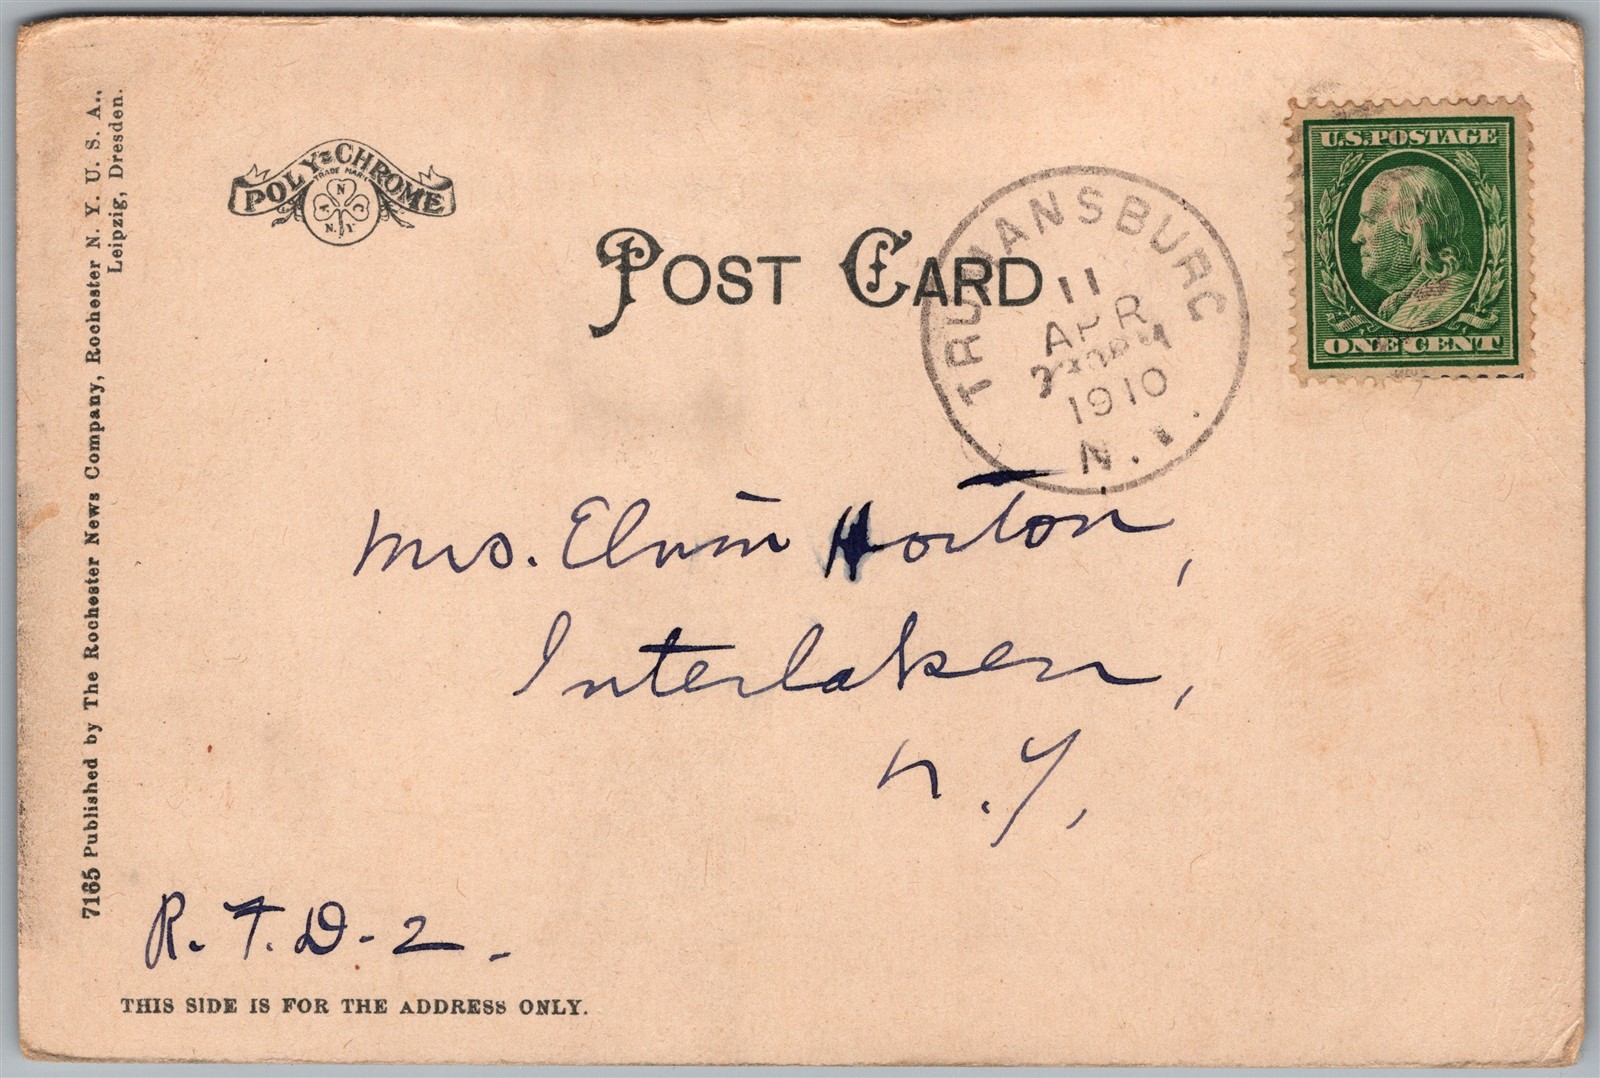 7165 Published by The Rochester News Company, Rochester N. Y. U. S. A.,
Leipzig, Dresden.
POLY-CHROME
TRADE MARK
N
A C
N. Y
POST CARD
TRUMANSBURG
11
APR
1910
N.
U.S. POSTAGE
ONE CENT
Mrs. Elvin Horton,
Interlaken,
N. Y,
R. F. D - 2 -
THIS SIDE IS FOR THE ADDRESS ONLY.